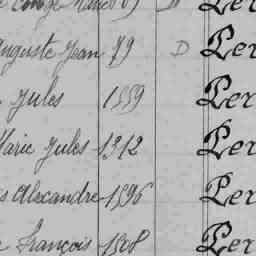 Auguste Jean 79 D Per
Jules 1559 Per
Marie Jules 1312 Per
Alexandre 1596 Per
François 1508 Per